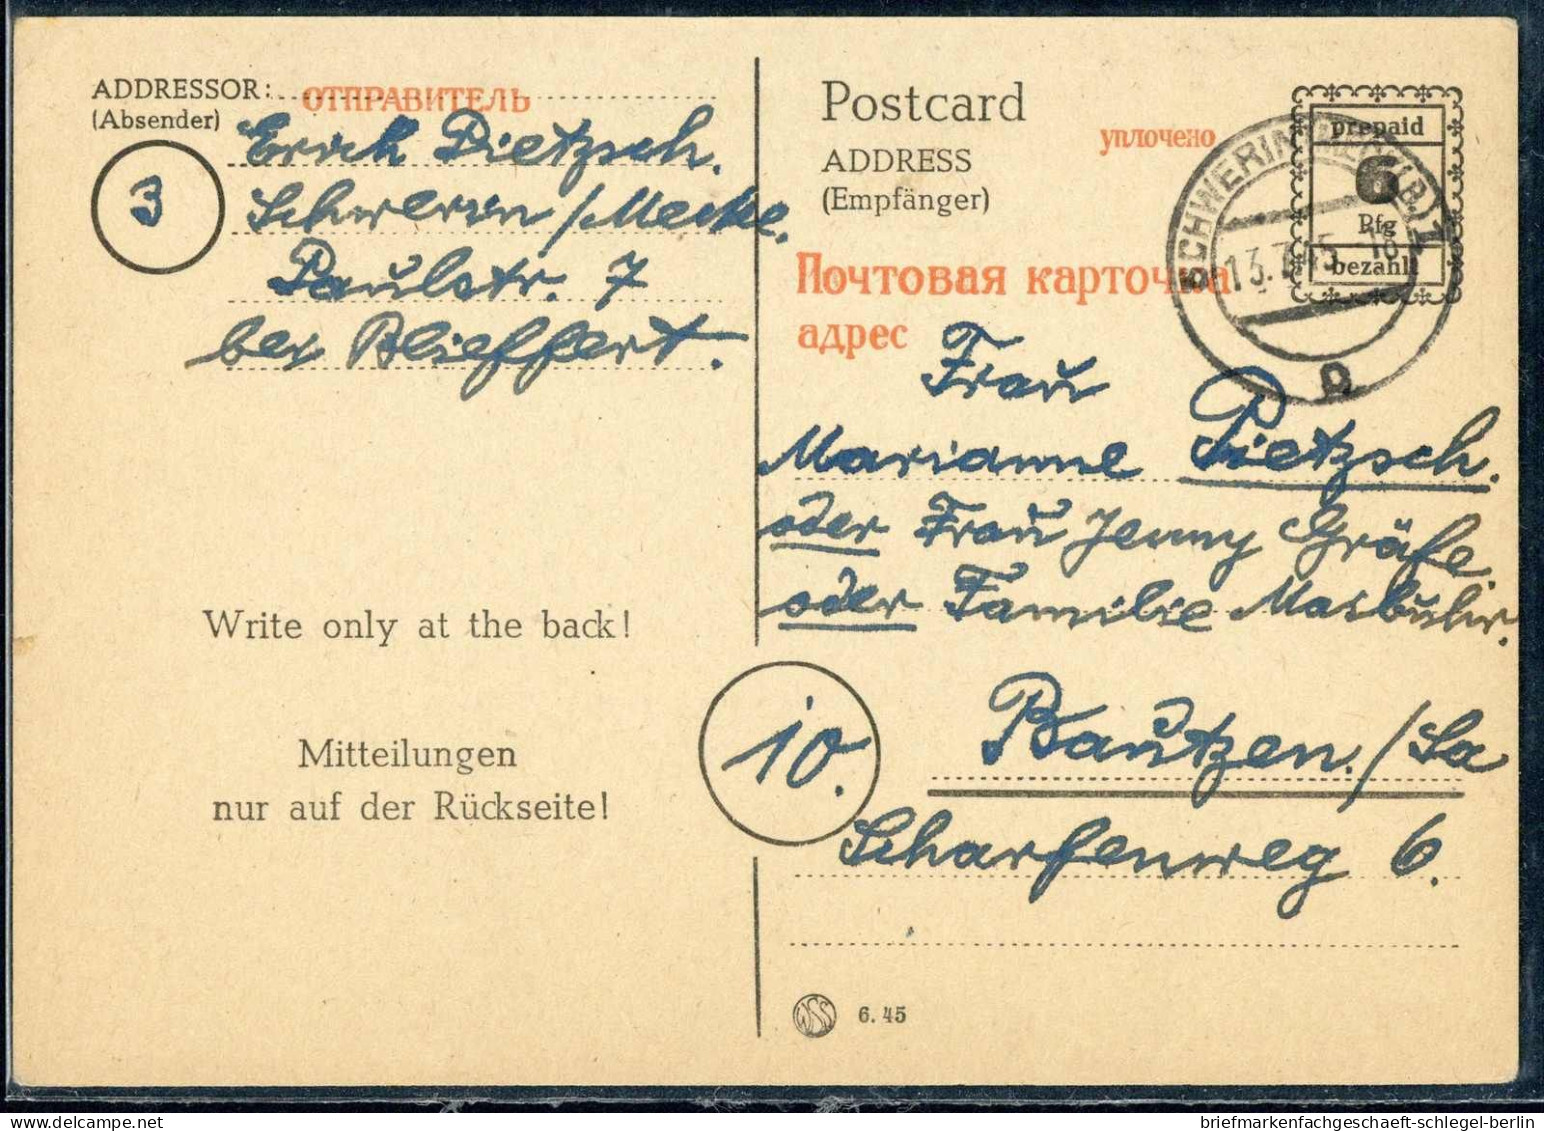 ADDRESSOR: ОТПРАВИТЕЛЬ
(Absender)
Erich Pietzsch.
3
Schwerin/Meckl.
Paulstr. 7
bei Blieffert.
Write only at the back!
Mitteilungen
nur auf der Rückseite!
Postcard
уплочено
ADDRESS
(Empfänger)
Почтовая карточка
адрес
prepaid
6
Pfg
bezahlt
SCHWERIN (MECKB) 1
13.7.45 18
Frau
Marianne Pietzsch.
oder Frau Jenny Gräfe.
oder Familie
10.
Bautzen./Sa
Scharfenweg 6.
WSS 6.45
briefmarkenfachgeschaeft-schlegel-berlin